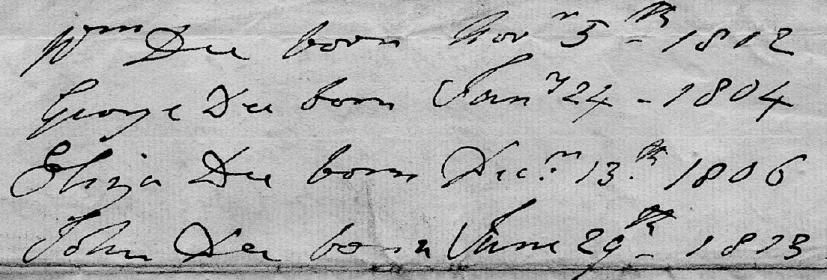 Wm Dee born Novr 5th 1812
George Dee born Jany 24 - 1804
Eliza Dee born Decr 13th 1806
John Dee born June 29th - 1813